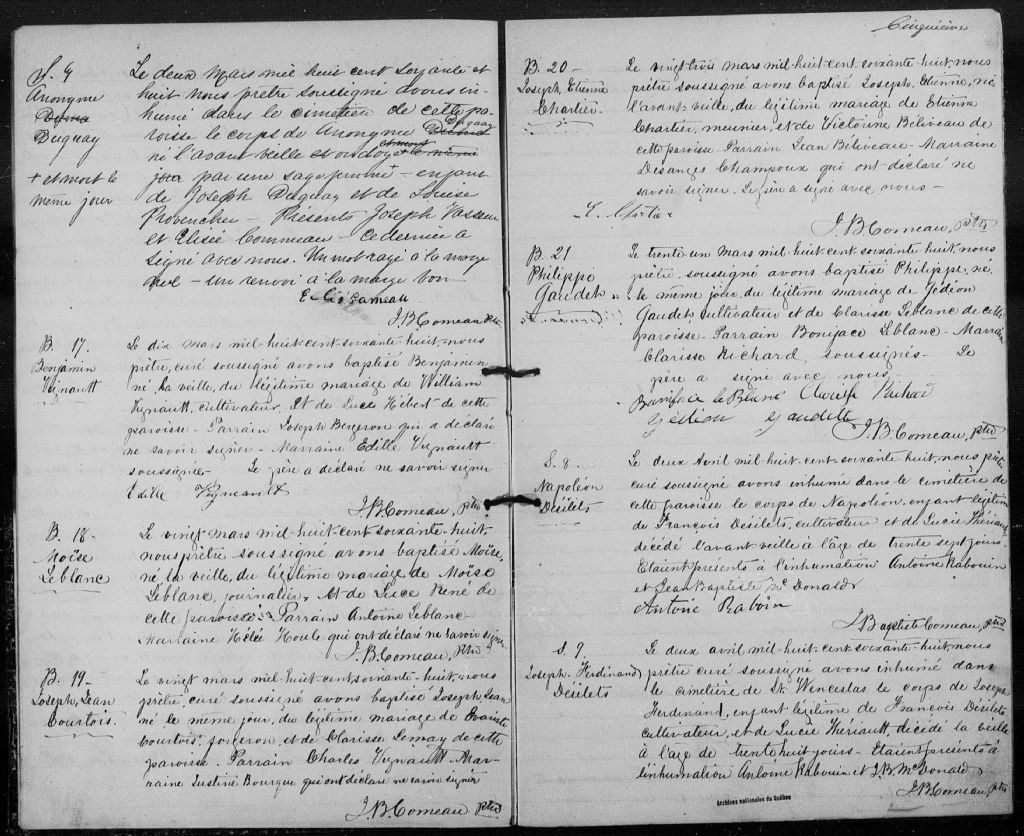 S. 7
Anonyme
Duguay
+ et mort le
même jour
Le deux Mars mil huit cent soixante et
huit nous prêtre soussigné avons in-
humé dans le cimetière de cette pa-
roisse le corps de Anonyme Duguay
né l'avant veille et ondoyé + le même
jour par une sage femme - enfant
de Joseph Duguay et de Louise
Provencher - Présents Joseph Vasseur
et Elisée Commeau - ce dernier a
signé avec nous. Un mot rayé à la marge
nul - un renvoi à la marge bon -
J. B. Comeau ptre
B. 17.
Benjamin
Vignault
Le dix mars mil-huit-cent-soixante-huit, nous
prêtre, curé soussigné avons baptisé Benjamin,
né la veille, du légitime mariage de William
Vignault, cultivateur, et de Luce Hébert de cette
paroisse - Parrain Joseph Bergeron qui a déclaré
ne savoir signer - Marraine Edille Vignault
soussignée - Le père a déclaré ne savoir signer
Edille Vigneault
J. B. Comeau, ptre
B. 18-
Moïse
Leblanc
Le vingt mars mil-huit-cent-soixante-huit,
nous prêtre, soussigné avons baptisé Moïse,
né la veille, du légitime mariage de Moïse
Leblanc, journalier, et de Luce René de
cette paroisse : Parrain Antoine Leblanc
Marraine Houle qui ont déclaré ne savoir signer
J. B. Comeau, ptre
B. 19-
Joseph, Jean
Courtois.
Le vingt mars mil-huit-cent-soixante-huit, nous
prêtre, curé soussigné avons baptisé Joseph Jean
né le même jour, du légitime mariage de
Courtois, forgeron, et de Clarisse Lemay de cette
paroisse - Parrain Charles Vignault - Mar-
raine Justine Bourque qui ont déclaré ne savoir signer
J. B. Comeau ptre
Cinquième
B. 20-
Joseph, Etienne
Chartier.
Le vingt trois mars mil-huit-cent-soixante-huit, nous
prêtre soussigné avons baptisé Joseph, Etienne, né
l'avant-veille, du légitime mariage de Etienne
Chartier, meunier, et de Victorine Béliveau de
cette paroisse Parrain Jean Béliveau - Marraine
Desanges Champoux qui ont déclaré ne
savoir signer. Le père a signé avec nous -
J. B. Comeau, ptre
B. 21
Philippe
Gaudet
Le trente un Mars mil-huit-cent-soixante huit, nous
prêtre, soussigné avons baptisé Philippe, né,
le même jour, du légitime mariage de Gédéon
Gaudet, cultivateur et de Clarisse Leblanc de cette
paroisse - Parrain Boniface Leblanc - Marraine
Clarisse Richard soussignés - Le
père a signé avec nous -
Boniface le Blanc Clarisse Richard
gedeon gaudette
J. B. Comeau, ptre
S. 8.
Napoléon
Désilets
Le deux Avril mil-huit-cent-soixante-huit, nous prêtre
curé soussigné avons inhumé dans le cimetière de
cette paroisse le corps de Napoléon, enfant légitime
de François Désilets, cultivateur et de Lucie Thériault,
décédé l'avant veille à l'âge de trente sept jours.
Etaient présents à l'inhumation Antoine Rabouin
et Jean Baptiste Mc Donald
Antoine Raboin
J Baptiste Comeau, ptre
S. 9.
Joseph Ferdinand
Désilets
Le deux avril mil-huit-cent-soixante-huit, nous
prêtre curé soussigné avons inhumé dans
le cimetière de St. Wenceslas le corps de Joseph
Ferdinand, enfant légitime de François Désilets,
cultivateur, et de Lucie Thériault, décédé la veille
à l'âge de trente huit jours - Etaient présents à
l'inhumation Antoine Rabouin et J. B. Mc Donald
J. B. Comeau, ptre
Archives nationales du Québec